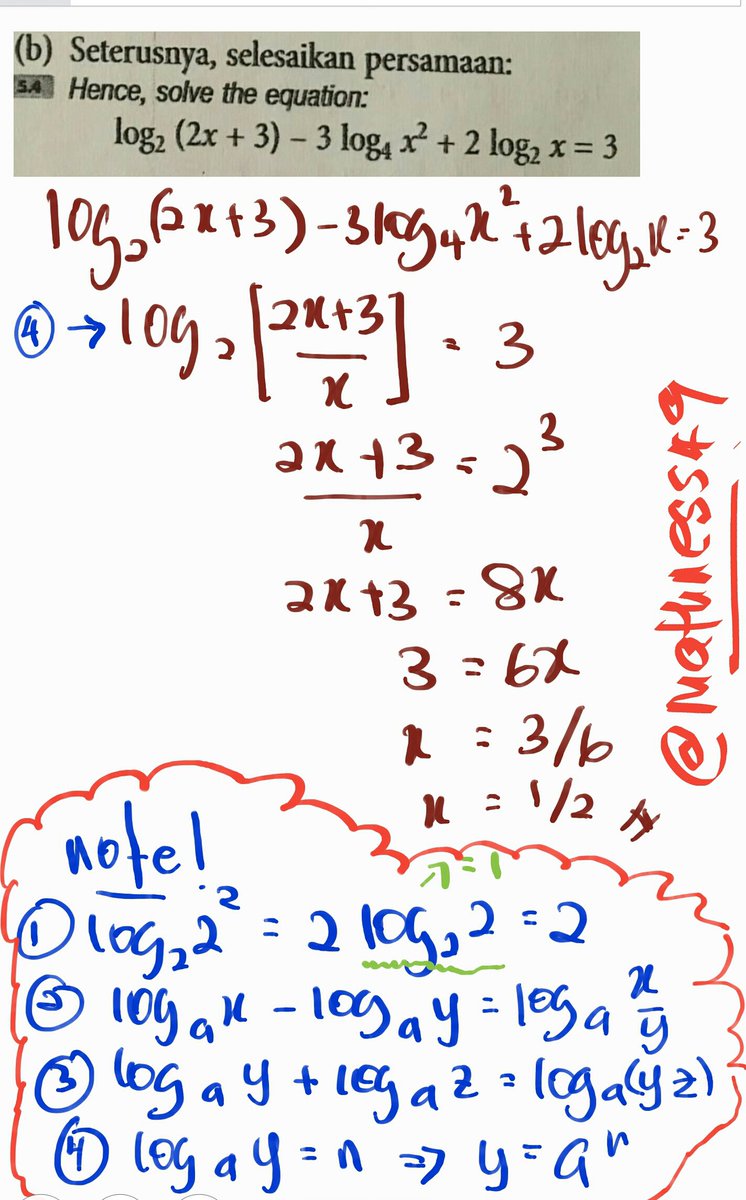 (b) Seterusnya, selesaikan persamaan:
5.4 Hence, solve the equation:
log₂ (2x + 3) – 3 log₄ x² + 2 log₂ x = 3
log₂(2x+3)-3log₄x²+2log₂x=3
④ → log₂[(2x+3)/x] = 3
(2x+3)/x = 2³
2x+3 = 8x
3 = 6x
x = 3/6
x = 1/2
@mathness49
note!
↗=1
① log₂2² = 2 log₂2 = 2
② logₐx - logₐy = logₐ x/y
③ logₐy + logₐz = logₐ(yz)
④ logₐy = n ⇒ y = aⁿ